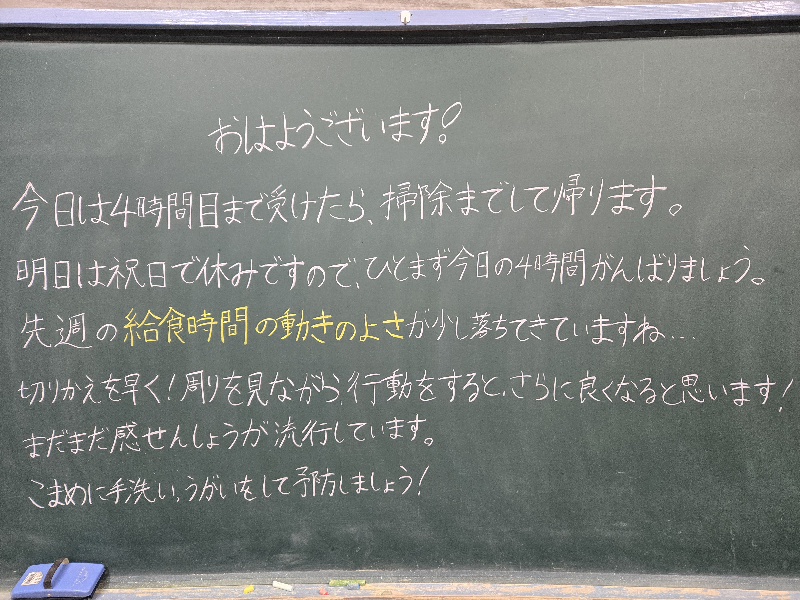 おはようございます!
今日は4時間目まで受けたら、掃除までして帰ります。
明日は祝日で休みですので、ひとまず今日の4時間がんばりましょう。
先週の給食時間の動きのよさが少し落ちてきていますね...
切りかえを早く!周りを見ながら、行動をすると、さらに良くなると思います!
まだまだ感せんしょうが流行しています。
こまめに手洗い、うがいをして予防しましょう!